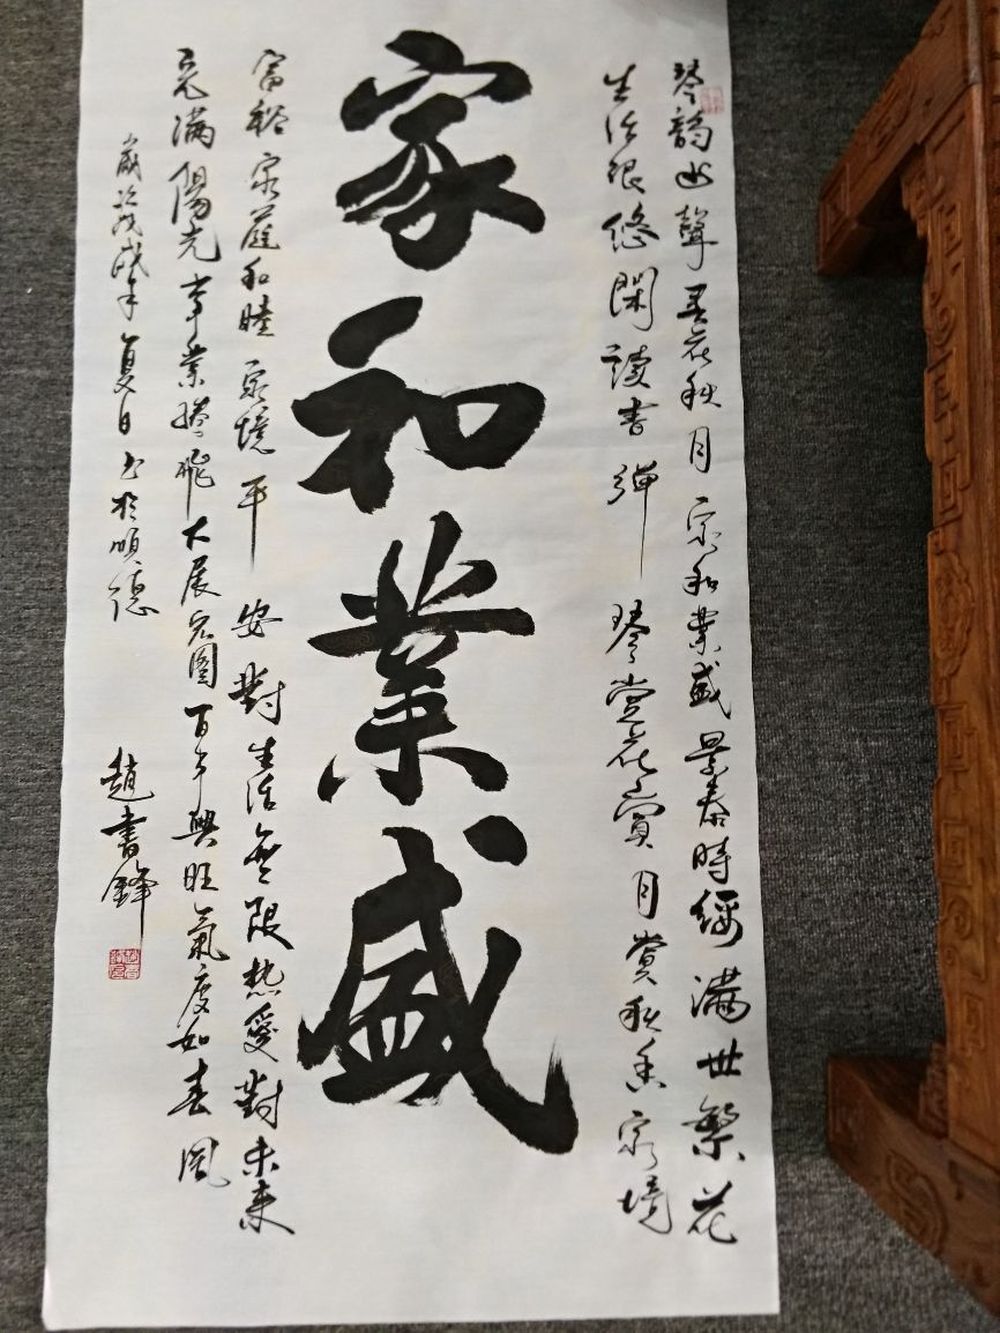 琴韵書聲春花秋月家和業盛景泰時綏滿世繁花
生活很悠閑讀書彈琴賞花賞月賞秋香家境
家和業盛
富裕家庭和睦家境平安對生活無限熱愛對未來
充滿陽光事業騰飛大展宏圖百年興旺氣度如春風
歲次戊戌年夏日書於順德
趙書鋒